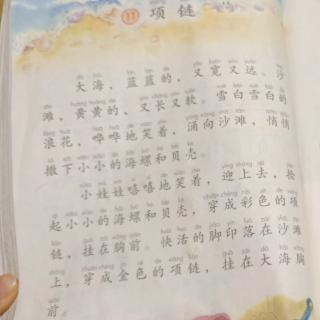 11 项链
大海，蓝蓝的，又宽又远。沙
滩，黄黄的，又长又软。雪白雪白的
浪花，哗哗地笑着，涌向沙滩，悄悄
撒下小小的海螺和贝壳。
小娃娃嘻嘻地笑着，迎上去，捡
起小小的海螺和贝壳，穿成彩色的项
链，挂在胸前。快活的脚印落在沙滩
上，穿成金色的项链，挂在大海胸
前。